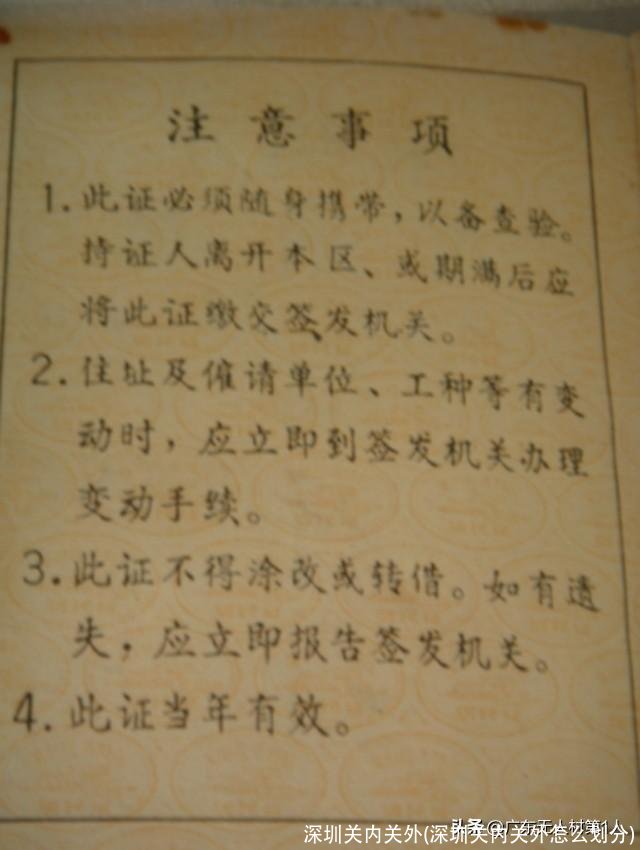 注意事项
1.此证必须随身携带，以备查验。
持证人离开本区、或期满后应
将此证缴交签发机关。
2.住址及僱请单位、工种等有变
动时，应立即到签发机关办理
变动手续。
3.此证不得涂改或转借。如有遗
失，应立即报告签发机关。
4.此证当年有效。
头条@广东无人村第1人
深圳关内关外(深圳关内关外怎么划分)